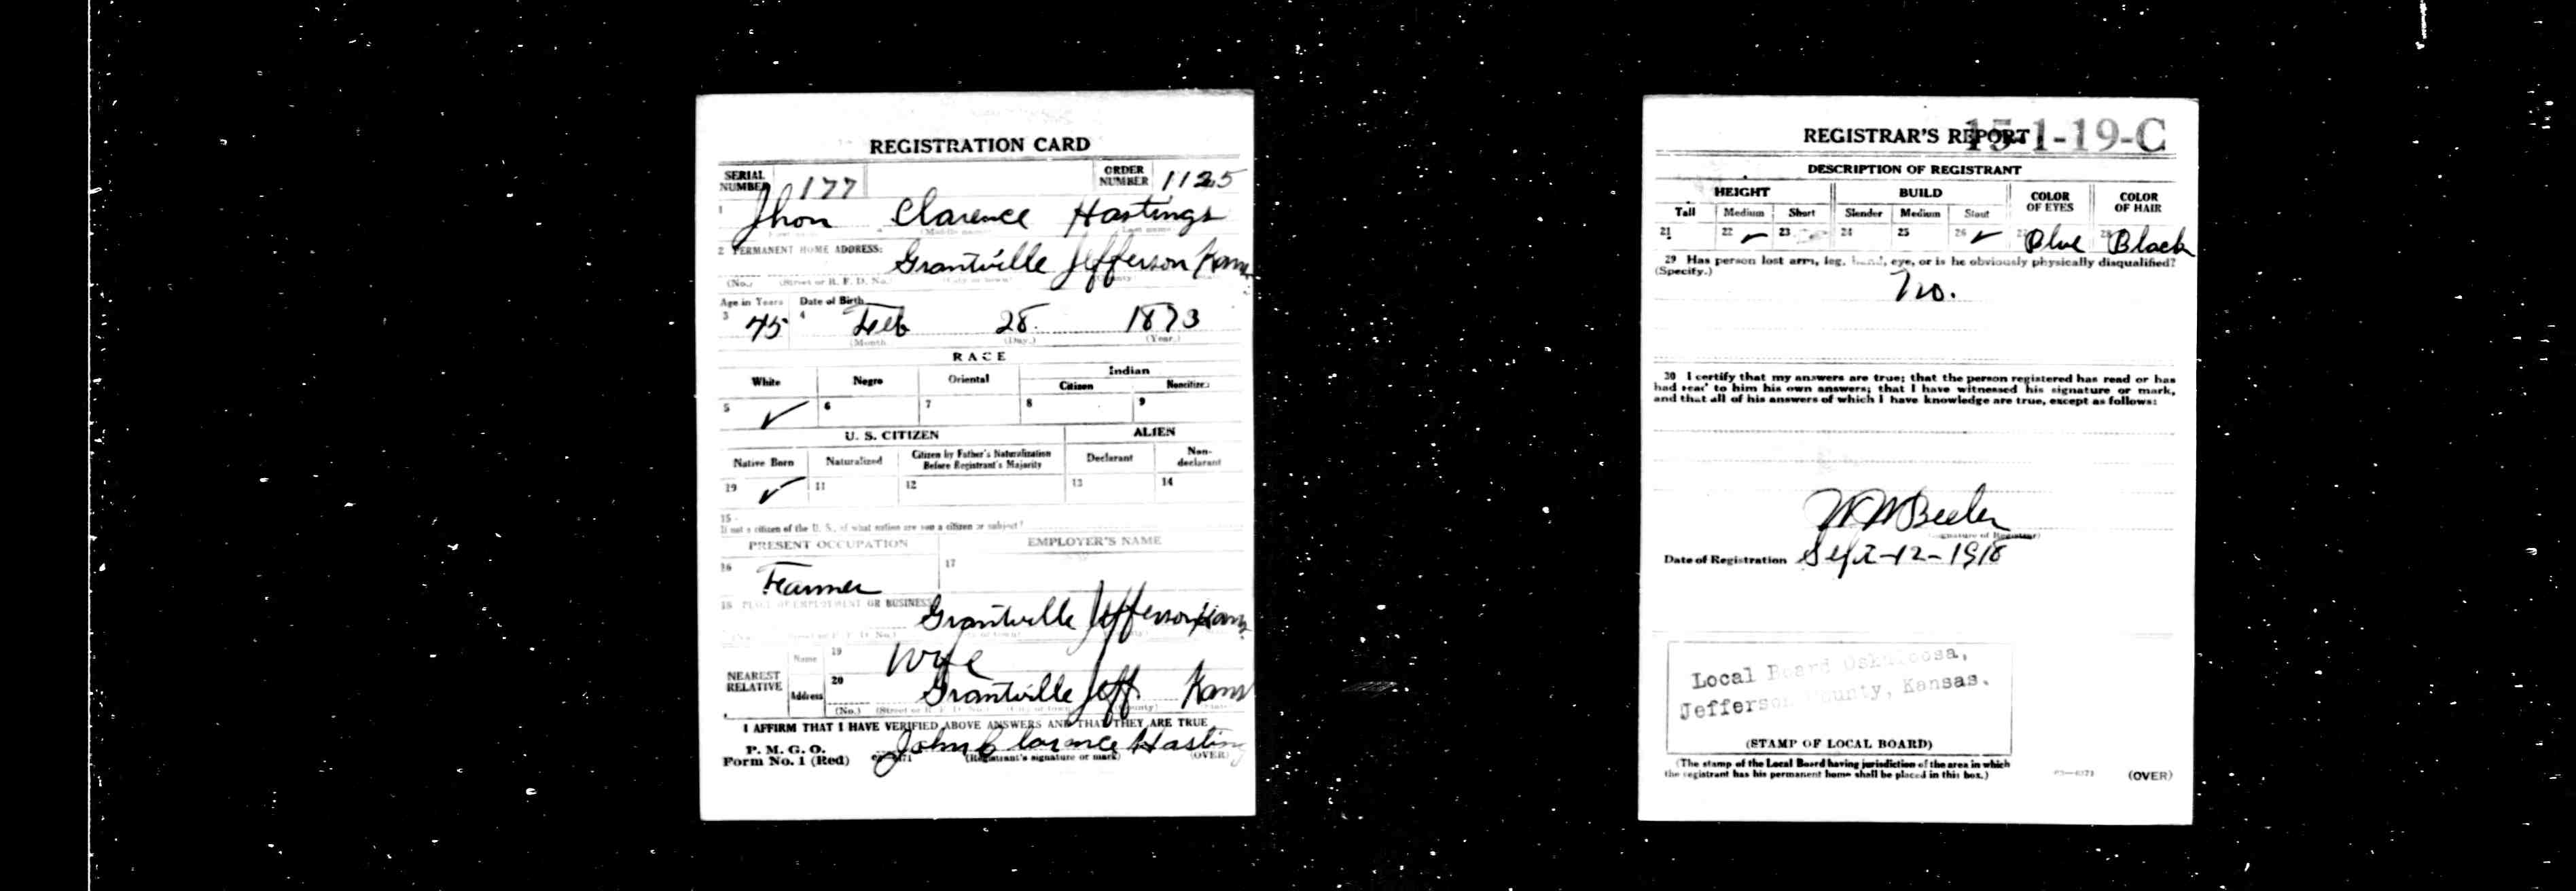 REGISTRATION CARD
SERIAL NUMBER 177 ORDER NUMBER 1125
1 Jhon Clarence Hastings
(Middle name) Last name
2 PERMANENT HOME ADDRESS:
Grantville Jefferson Kans
(No.) (Street or R. F. D. No.) (City or town) County
Age in Years Date of Birth
3 45 4 Feb 28 1873
(Month (Day.) (Year.)
RACE
White Negro Oriental Indian
Citizen Noncitizen
5 ✓ 6 7 8 9
U. S. CITIZEN ALIEN
Native Born Naturalized Citizen by Father's Naturalization Before Registrant's Majority Declarant Non-declarant
10 ✓ 11 12 13 14
15
If not a citizen of the U. S., of what nation are you a citizen or subject?
PRESENT OCCUPATION EMPLOYER'S NAME
16 Farmer 17
18 PLACE OF EMPLOYMENT OR BUSINESS
Grantville Jefferson Kans
(No.) (Street or R. F. D. No.) (City or town)
NEAREST RELATIVE Name 19 Wife
Address 20 Grantville Jeff Kans
(No.) (Street or R. F. D. No.) (City or town) (County) (State)
I AFFIRM THAT I HAVE VERIFIED ABOVE ANSWERS AND THAT THEY ARE TRUE
P. M. G. O.
Form No. 1 (Red) John Clarence Hasting
(Registrant's signature or mark) (OVER)
REGISTRAR'S REPORT 15-1-19-C
DESCRIPTION OF REGISTRANT
HEIGHT BUILD COLOR OF EYES COLOR OF HAIR
Tall Medium Short Slender Medium Stout
21 22 ✓ 23 24 25 26 ✓ 27 Blue 28 Black
29 Has person lost arm, leg, hand, eye, or is he obviously physically disqualified?
(Specify.)
No.
30 I certify that my answers are true; that the person registered has read or has
had read to him his own answers; that I have witnessed his signature or mark,
and that all of his answers of which I have knowledge are true, except as follows:
W M Beeler
(Signature of Registrar)
Date of Registration Sept-12-1918
Local Board Oskaloosa,
Jefferson County, Kansas.
(STAMP OF LOCAL BOARD)
(The stamp of the Local Board having jurisdiction of the area in which
the registrant has his permanent home shall be placed in this box.)
03-6171 (OVER)